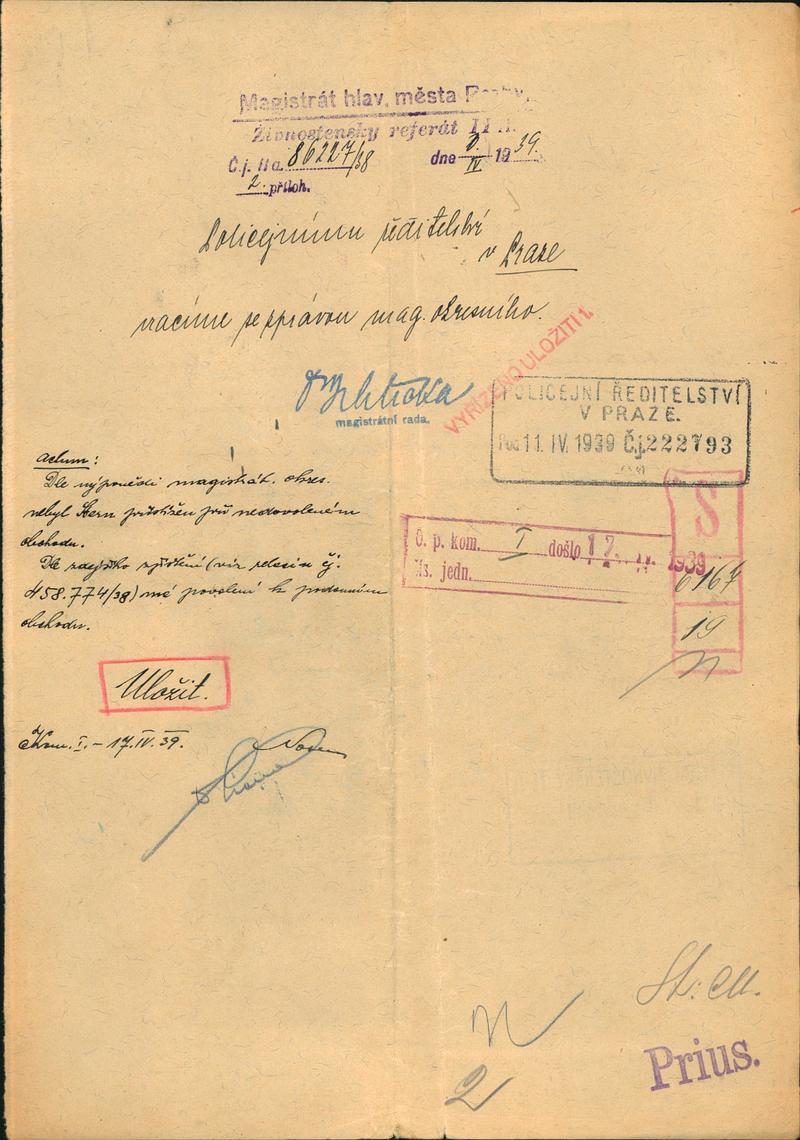 Magistrát hlav. města Prahy
Živnostenský referát II A.
Č.j. IIa. 86227/38 dne 8/IV 1939.
2 příloh.
Policejnímu ředitelství
v Praze
vracíme se zprávou mag. okresního.
magistrátní rada.
VYŘÍZENO ULOŽITI 1.
POLICEJNÍ ŘEDITELSTVÍ
V PRAZE.
11. IV. 1939 Č.j. 222793
actum:
Dle výpovědi magistrát. okres.
nebyl Stern přistižen při nedovoleném
obchodu.
Dle zdejšího zjištění (viz relesin čj.
458.774/38) má povolení k podomním
obchodu.
S
O. p. kom. I došlo 12. IV. 1939
čís. jedn.
6167
19
Uložit.
Kom. I. - 17. IV. 39.
N
2
St: M.
Prius.